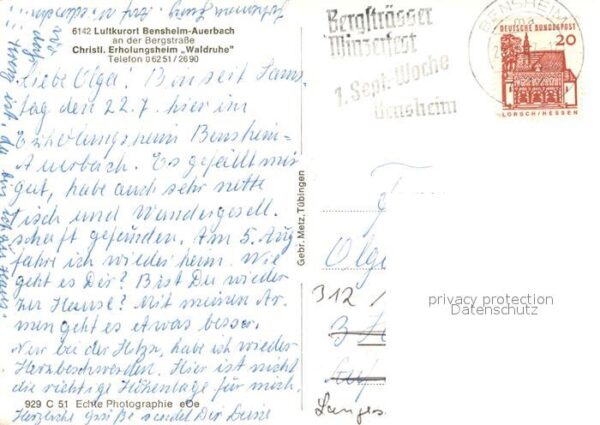 6142 Luftkurort Bensheim-Auerbach
an der Bergstraße
Christl. Erholungsheim „Waldruhe"
Telefon 06251/2690
Liebe Olga! Bin seit Sams-
tag den 22.7. hier im
Erholungsheim Bensheim-
Auerbach. Es gefällt mir
gut, habe auch sehr nette
Tisch und Wandergesell.
schaft gefunden. Am 5. Aug
fahre ich wieder heim. Wie
geht es Dir? Bist Du wieder
zur Hause? Mit meinen Ar-
men geht es etwas besser.
Nur bei der Hitze, habe ich wieder
Herzbeschwerden. Hier ist nicht
die richtige Höhenlage für mich.
Herzliche Grüße sendet Dir Deine
929 C 51 Echte Photographie
Gebr. Metz, Tübingen
Bergsträsser
Winzerfest
1. Sept.-Woche
Bensheim
BENSHEIM
DEUTSCHE BUNDESPOST
20
LORSCH/HESSEN
Olga
312 /
privacy protection
Datenschutz